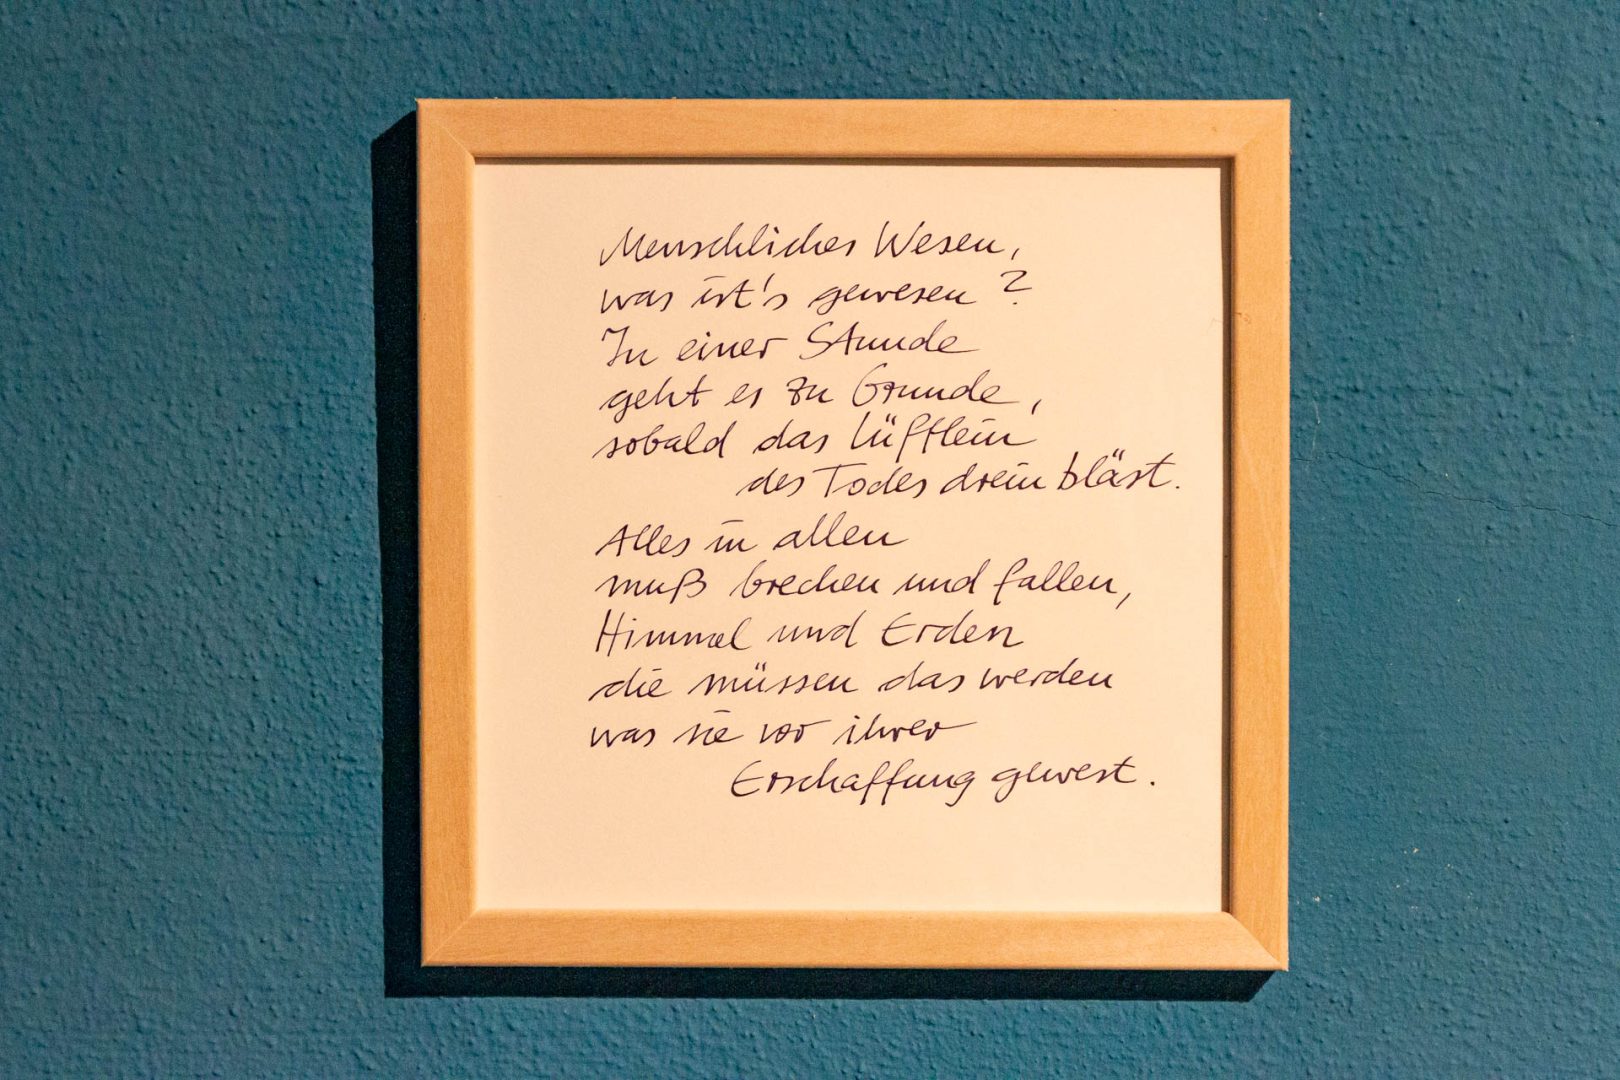 Menschliches Wesen,
was ist's gewesen?
In einer Stunde
geht es zu Grunde,
sobald das Lüftlein
des Todes drein bläst.
Alles in allen
muß brechen und fallen,
Himmel und Erden
die müssen das werden
was sie vor ihrer
Erschaffung gewest.